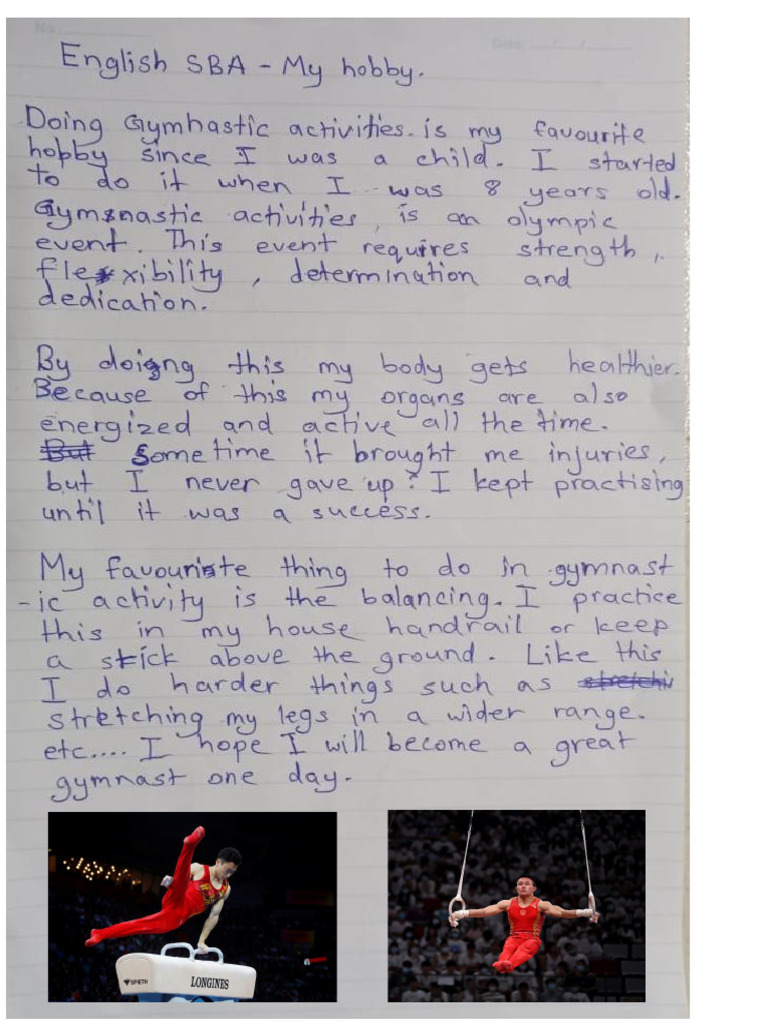 No:
Date: / /
English SBA - My hobby.
Doing Gymnastic activities. is my favourite
hobby since I was a child. I started
to do it when I was 8 years old.
Gymnastic activities, is an olympic
event. This event requires strength,
flexibility, determination and
dedication.
By doing this my body gets healthier.
Because of this my organs are also
energized and active all the time.
But Sometime it brought me injuries,
but I never gave up? I kept practising
until it was a success.
My favourite thing to do in gymnast
-ic activity is the balancing. I practice
this in my house handrail or keep
a stick above the ground. Like this
I do harder things such as stretchi
stretching my legs in a wider range.
etc.... I hope I will become a great
gymnast one day.
SPIETH LONGINES